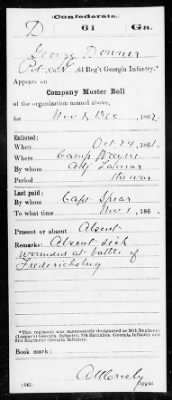 Confederate.
D 61 Ga.
George Downer
Pvt, Co. , 61 Reg't Georgia Infantry.*
Appears on
Company Muster Roll
of the organization named above,
for Nov & Dec , 1862.
Enlisted:
When Oct 24 , 1861.
Where Camp
By whom
Period the war
Last paid:
By whom Capt Spear
To what time Nov 1 , 186
Present or absent Absent
Remarks: Absent sick
wounded at battle of
Fredericksburg
*This regiment was successively designated as 26th Regiment
61st Regiment Georgia Infantry.
Book mark:
(642) Copyist.